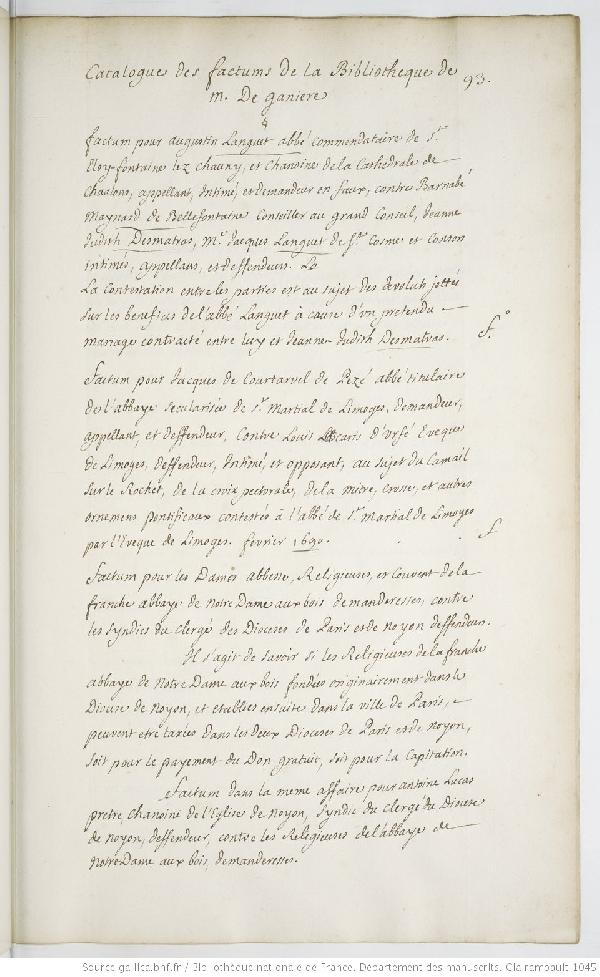 Catalogues des factums de la Bibliotheque de
93.
m. De ganiere
factum pour augustin Languet abbé commendataire de St.
Eloy-fontaine lez chauny, et Chanoine de la Cathedrale de
Chaalons, appellant, Intimé, et demandeur en faux, contre Barnabé
Maynard de Bellefontaine Conseiller au grand Conseil, Jeanne
Judith Desmatras, Me. Jacques Languet de St. Cosme et Consors
intimés, appellans, et deffendeurs.
La Contestation entre les parties est au sujet des devoluts jettés
sur les benefices de l'abbé Languet à cause d'un pretendu
mariage contracté entre luy et Jeanne Judith Desmatras.
fo.
Factum pour Jacques de Courtarvel de Pezé abbé titulaire
de l'abbaye secularisée de St. Martial de Limoges, demandeur,
appellant, et deffendeur, Contre Louis Lascaris d'Urfé Eveque
de Limoges, deffendeur, Intimé, et opposant, au sujet du Camail
sur le Rochet, de la croix pectorale, de la mitre, crosse, et autres
ornemens pontificaux contestés à l'abbé de St. Martial de Limoges
par l'Eveque de Limoges. fevrier 1690.
f
Factum pour les Dames abbesse, Religieuses, et Couvent de la
franche abbaye de Notre Dame aux bois demanderesses, contre
les Syndics du Clergé des Dioceses de Paris et de Noyon deffendeurs.
Il s'agit de savoir si les Religieuses de la franche
abbaye de Notre Dame aux bois fondées originairement dans le
Diocese de Noyon, et etablies ensuite dans la ville de Paris,
peuvent etre taxées dans les deux Dioceses de Paris et de Noyon,
soit pour le payement du Don gratuit, soit pour la Capitation.
Factum dans la meme affaire pour antoine Lucas
pretre, chanoine de l'Eglise de Noyon, Syndic du clergé du Diocese
de Noyon, deffendeur, contre les Religieuses de l'abbaye de
Notre Dame aux bois, demanderesses.
Source gallica.bnf.fr / Bibliothèque nationale de France. Département des manuscrits. Clairambault 1045